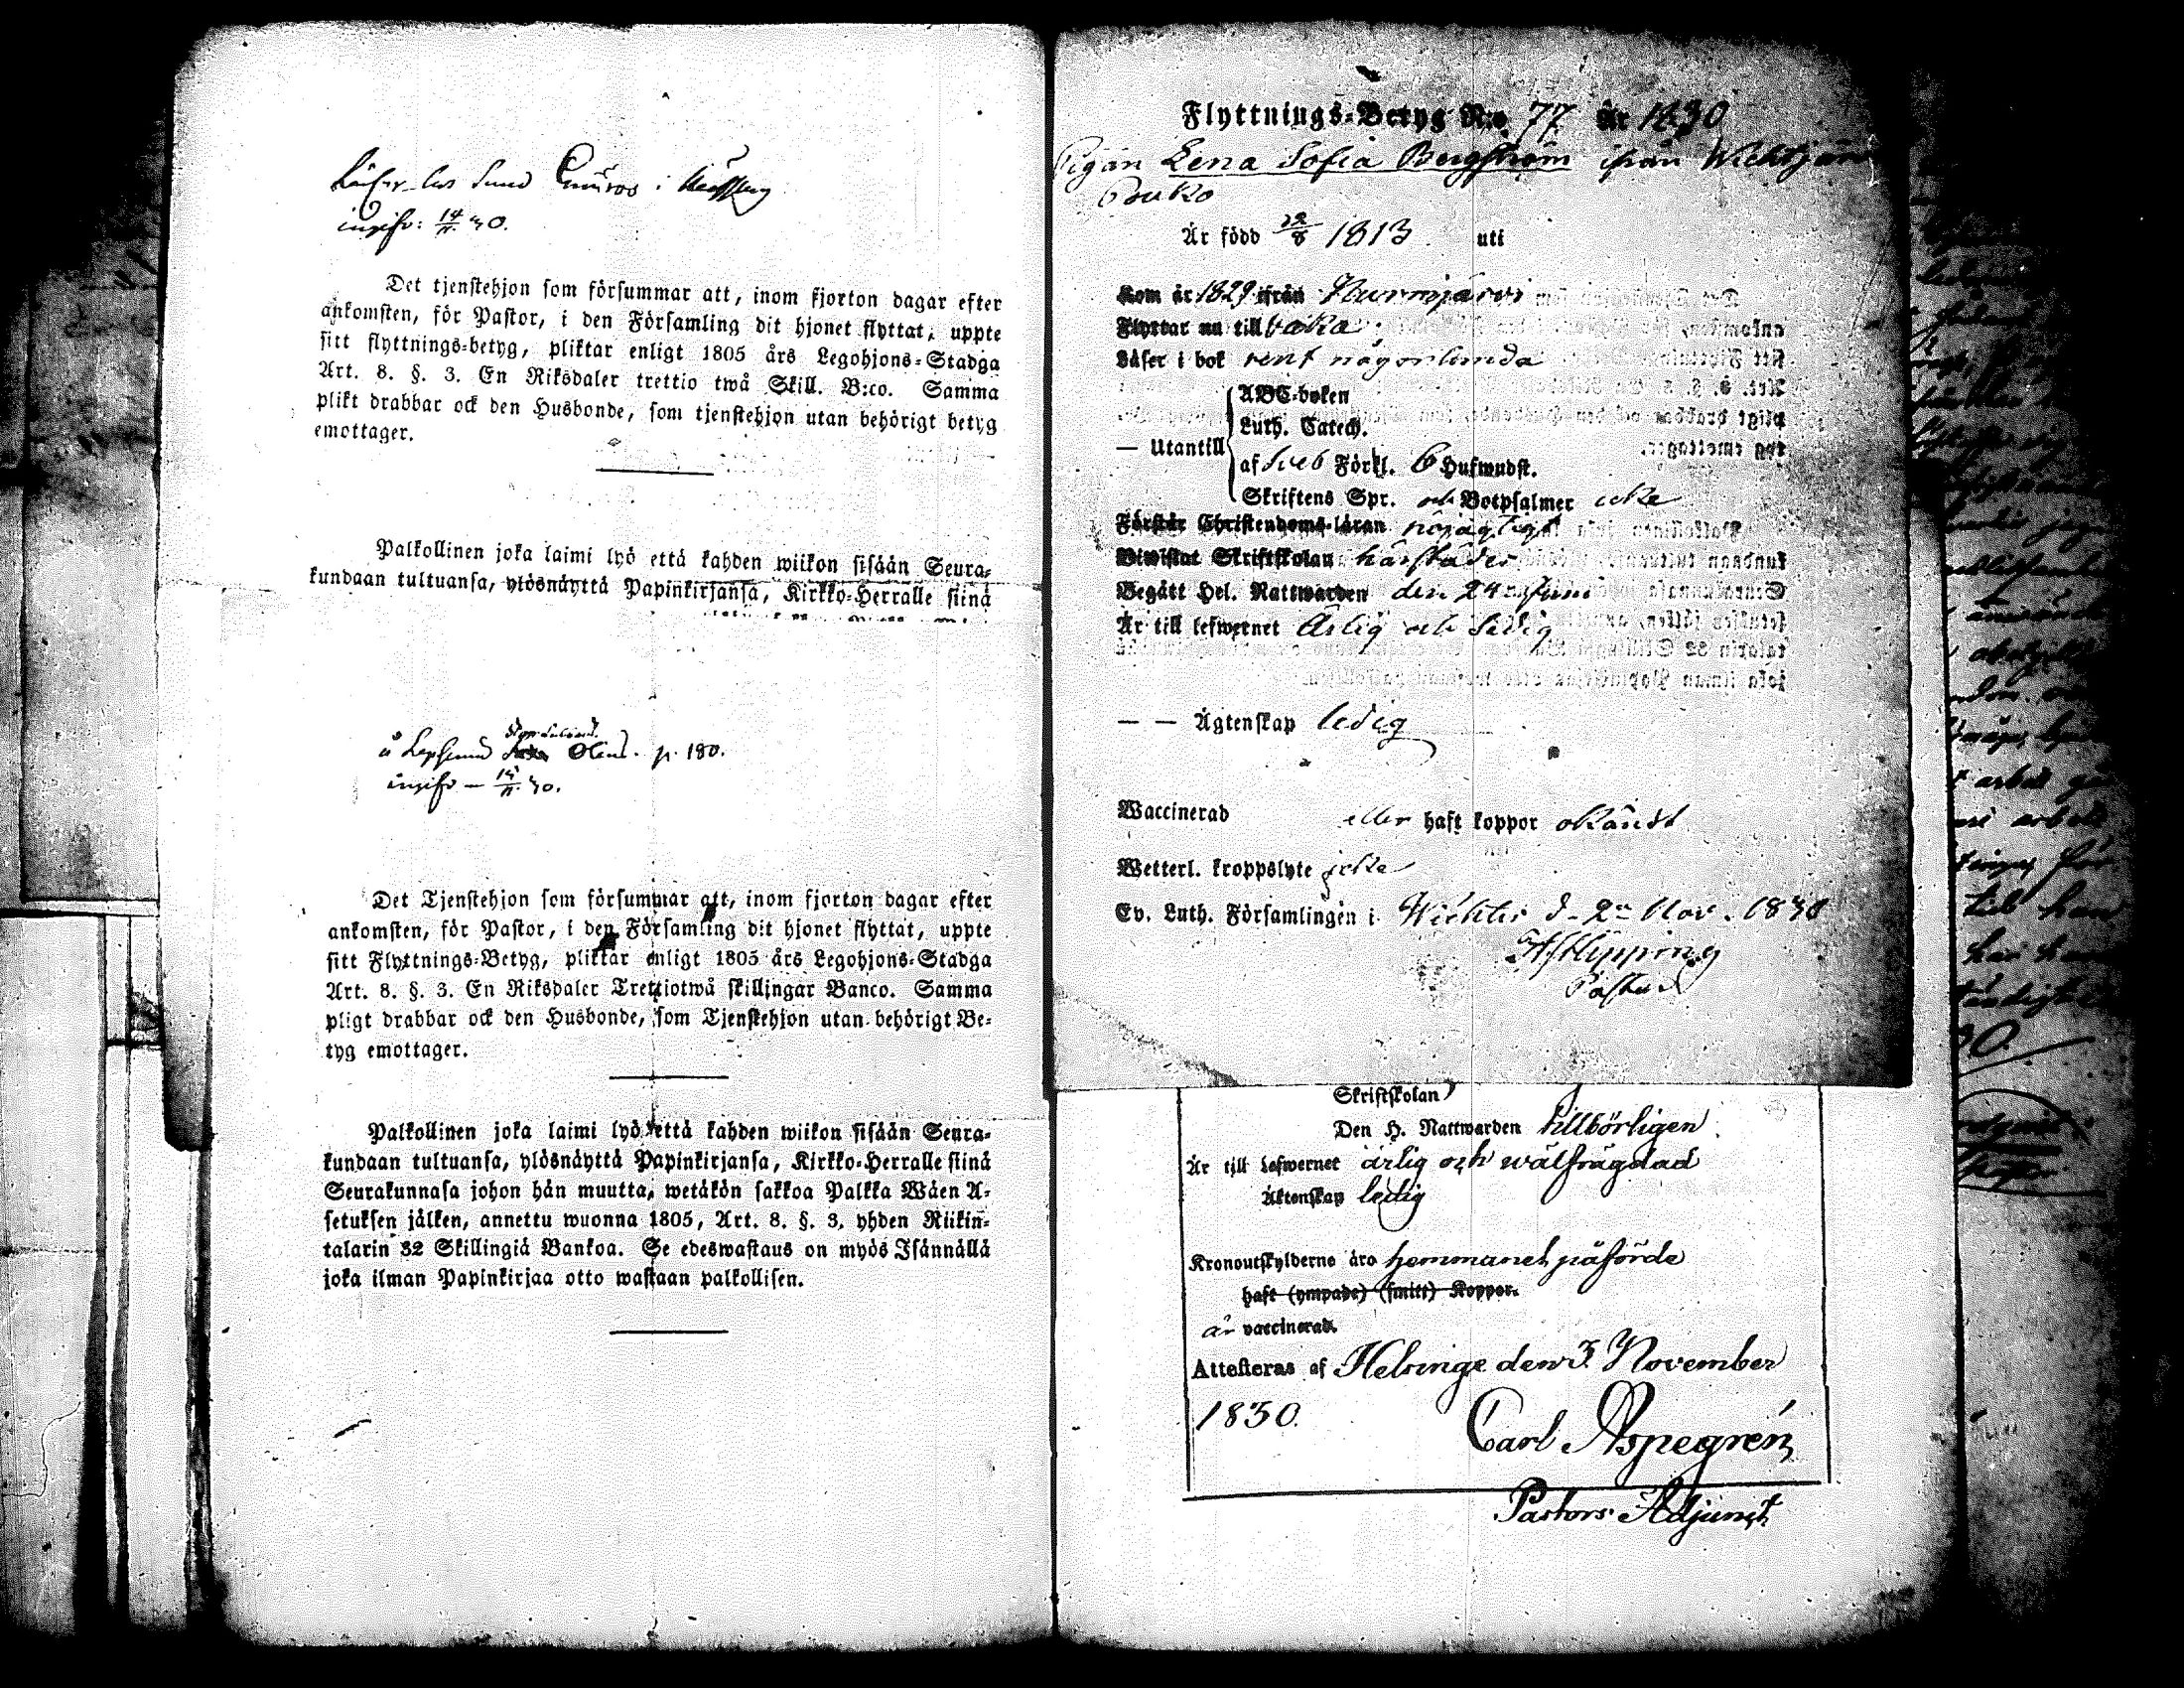 i
ingifv: 14/11 30.
Det tjenstehjon som försummar att, inom fjorton dagar efter
ankomsten, för Pastor, i den Församling dit hjonet flyttat, uppte
sitt flyttnings-betyg, pliktar enligt 1805 års Legohjons-Stadga
Art. 8. §. 3. En Riksdaler trettio twå Skill. B:co. Samma
plikt drabbar ock den Husbonde, som tjenstehjon utan behörigt betyg
emottager.
Palkollinen joka laimi lyö että kahden wiikon sisään Seura-
kundaan tultuansa, ylösnäyttä Papinkirjansa, Kirkko-Herralle siinä
å p. 180.
ingifv — 30.
Det Tjenstehjon som försummar att, inom fjorton dagar efter
ankomsten, för Pastor, i den Församling dit hjonet flyttat, uppte
sitt Flyttnings-Betyg, pliktar enligt 1805 års Legohjons-Stadga
Art. 8. §. 3. En Riksdaler Trettiotwå skillingar Banco. Samma
pligt drabbar ock den Husbonde, som Tjenstehjon utan behörigt Be-
tyg emottager.
Palkollinen joka laimi lyö että kahden wiikon sisään Seura-
kundaan tultuansa, ylösnäyttä Papinkirjansa, Kirkko-Herralle siinä
Seurakunnasa johon hän muutta, wetäkön sakkoa Palkka Wäen A-
setuksen jälken, annettu wuonna 1805, Art. 8. §. 3, yhden Riikin-
talarin 32 Skillingiä Bankoa. Se edeswastaus on myös Isännällä
joka ilman Papinkirjaa otto wastaan palkollisen.
Flyttnings-Betyg N:o 77 År 1830
Pigan Lena Sofia Bergström ifrån Wichtjärvi
Bruko
Är född 1813 uti
Kom år 1829 ifrån Nurmijärvi
Flyttar nu till baka
Läser i bok rent någorlunda
ABC-boken
Luth. Catech.
— Utantill
af Sveb Förkl. 6 Hufwudst.
Skriftens Spr. och Botpsalmer icke
Förstår Christendoms-läran nöjagtigt
Biwistat Skriftskolan härstädes
Begått Hel. Nattwarden den 24 Juni
Är till lefwernet Ärlig och Sedig
— — Ägtenskap ledig
Waccinerad eller haft koppor okändt
Wetterl. kroppslyte icke
Ev. Luth. Församlingen i Wichtis d. 2 Nov. 1830
Hipping
Pastor
Skriftskolan
Den H. Nattwarden tillbörligen
Är till Lefwernet ärlig och wälfrägdad
Äktenskap ledig
Kronoutskylderne äro hemmanet påförde
haft (ympade) (smitt) Koppor.
är vaccinerad.
Attesteras af Helsinge den 3 November
1830.
Carl Aspegrén
Pastors Adjunct